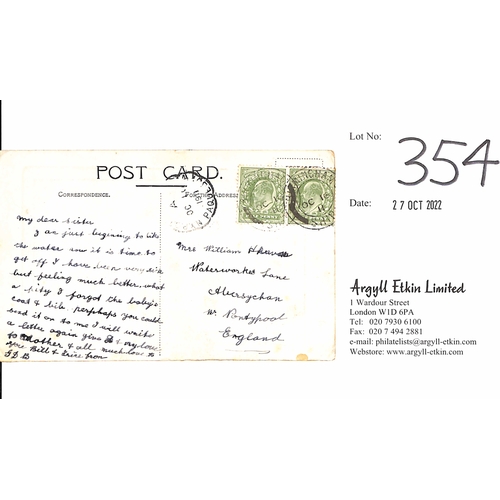 Lot No: 354
Date: 27 OCT 2022
Argyll Etkin Limited
1 Wardour Street
London W1D 6PA
Tel: 020 7930 6100
Fax: 020 7 494 2881
e-mail: philatelists@argyll-etkin.com
Webstore: www.argyll-etkin.com
POST CARD.
CORRESPONDENCE.
FOR THE ADDRESS
My dear sister
I am just beginning to like
the water now it is time to
get off I have been very sick
but feeling much better. what
a pity I forgot the baby's
coat & bib perhaps you could
send it on to me I will write
a letter again give & my love
to Mother & all much love to
Bill & from
Mrs William
Waterworks Lane
Abersychan
nr. Pontypool
England